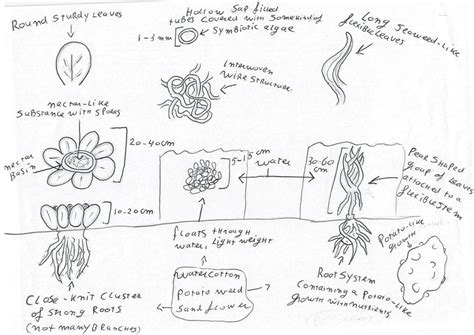 Round Sturdy Leaves
Hollow Sap filled
tubes covered with some kind of
symbiotic algae
1-3mm
Long Seaweed-Like
flexible Leaves
Interwoven
Wire Structure
nectar-Like
Substance with Spores
20-40cm
nectar
Basin
5-15cm
water
30-60
cm
Pear Shaped
group of Leaves
attached to a
flexible stem
10-20cm
floats through
water, Light weight
Potato-Like
growth
Close-Knit Cluster
of Strong Roots
(not many Branches)
Watercotton
Potato weed
Sand flower
Root System
Containing a Potato-Like
growth with nutrients